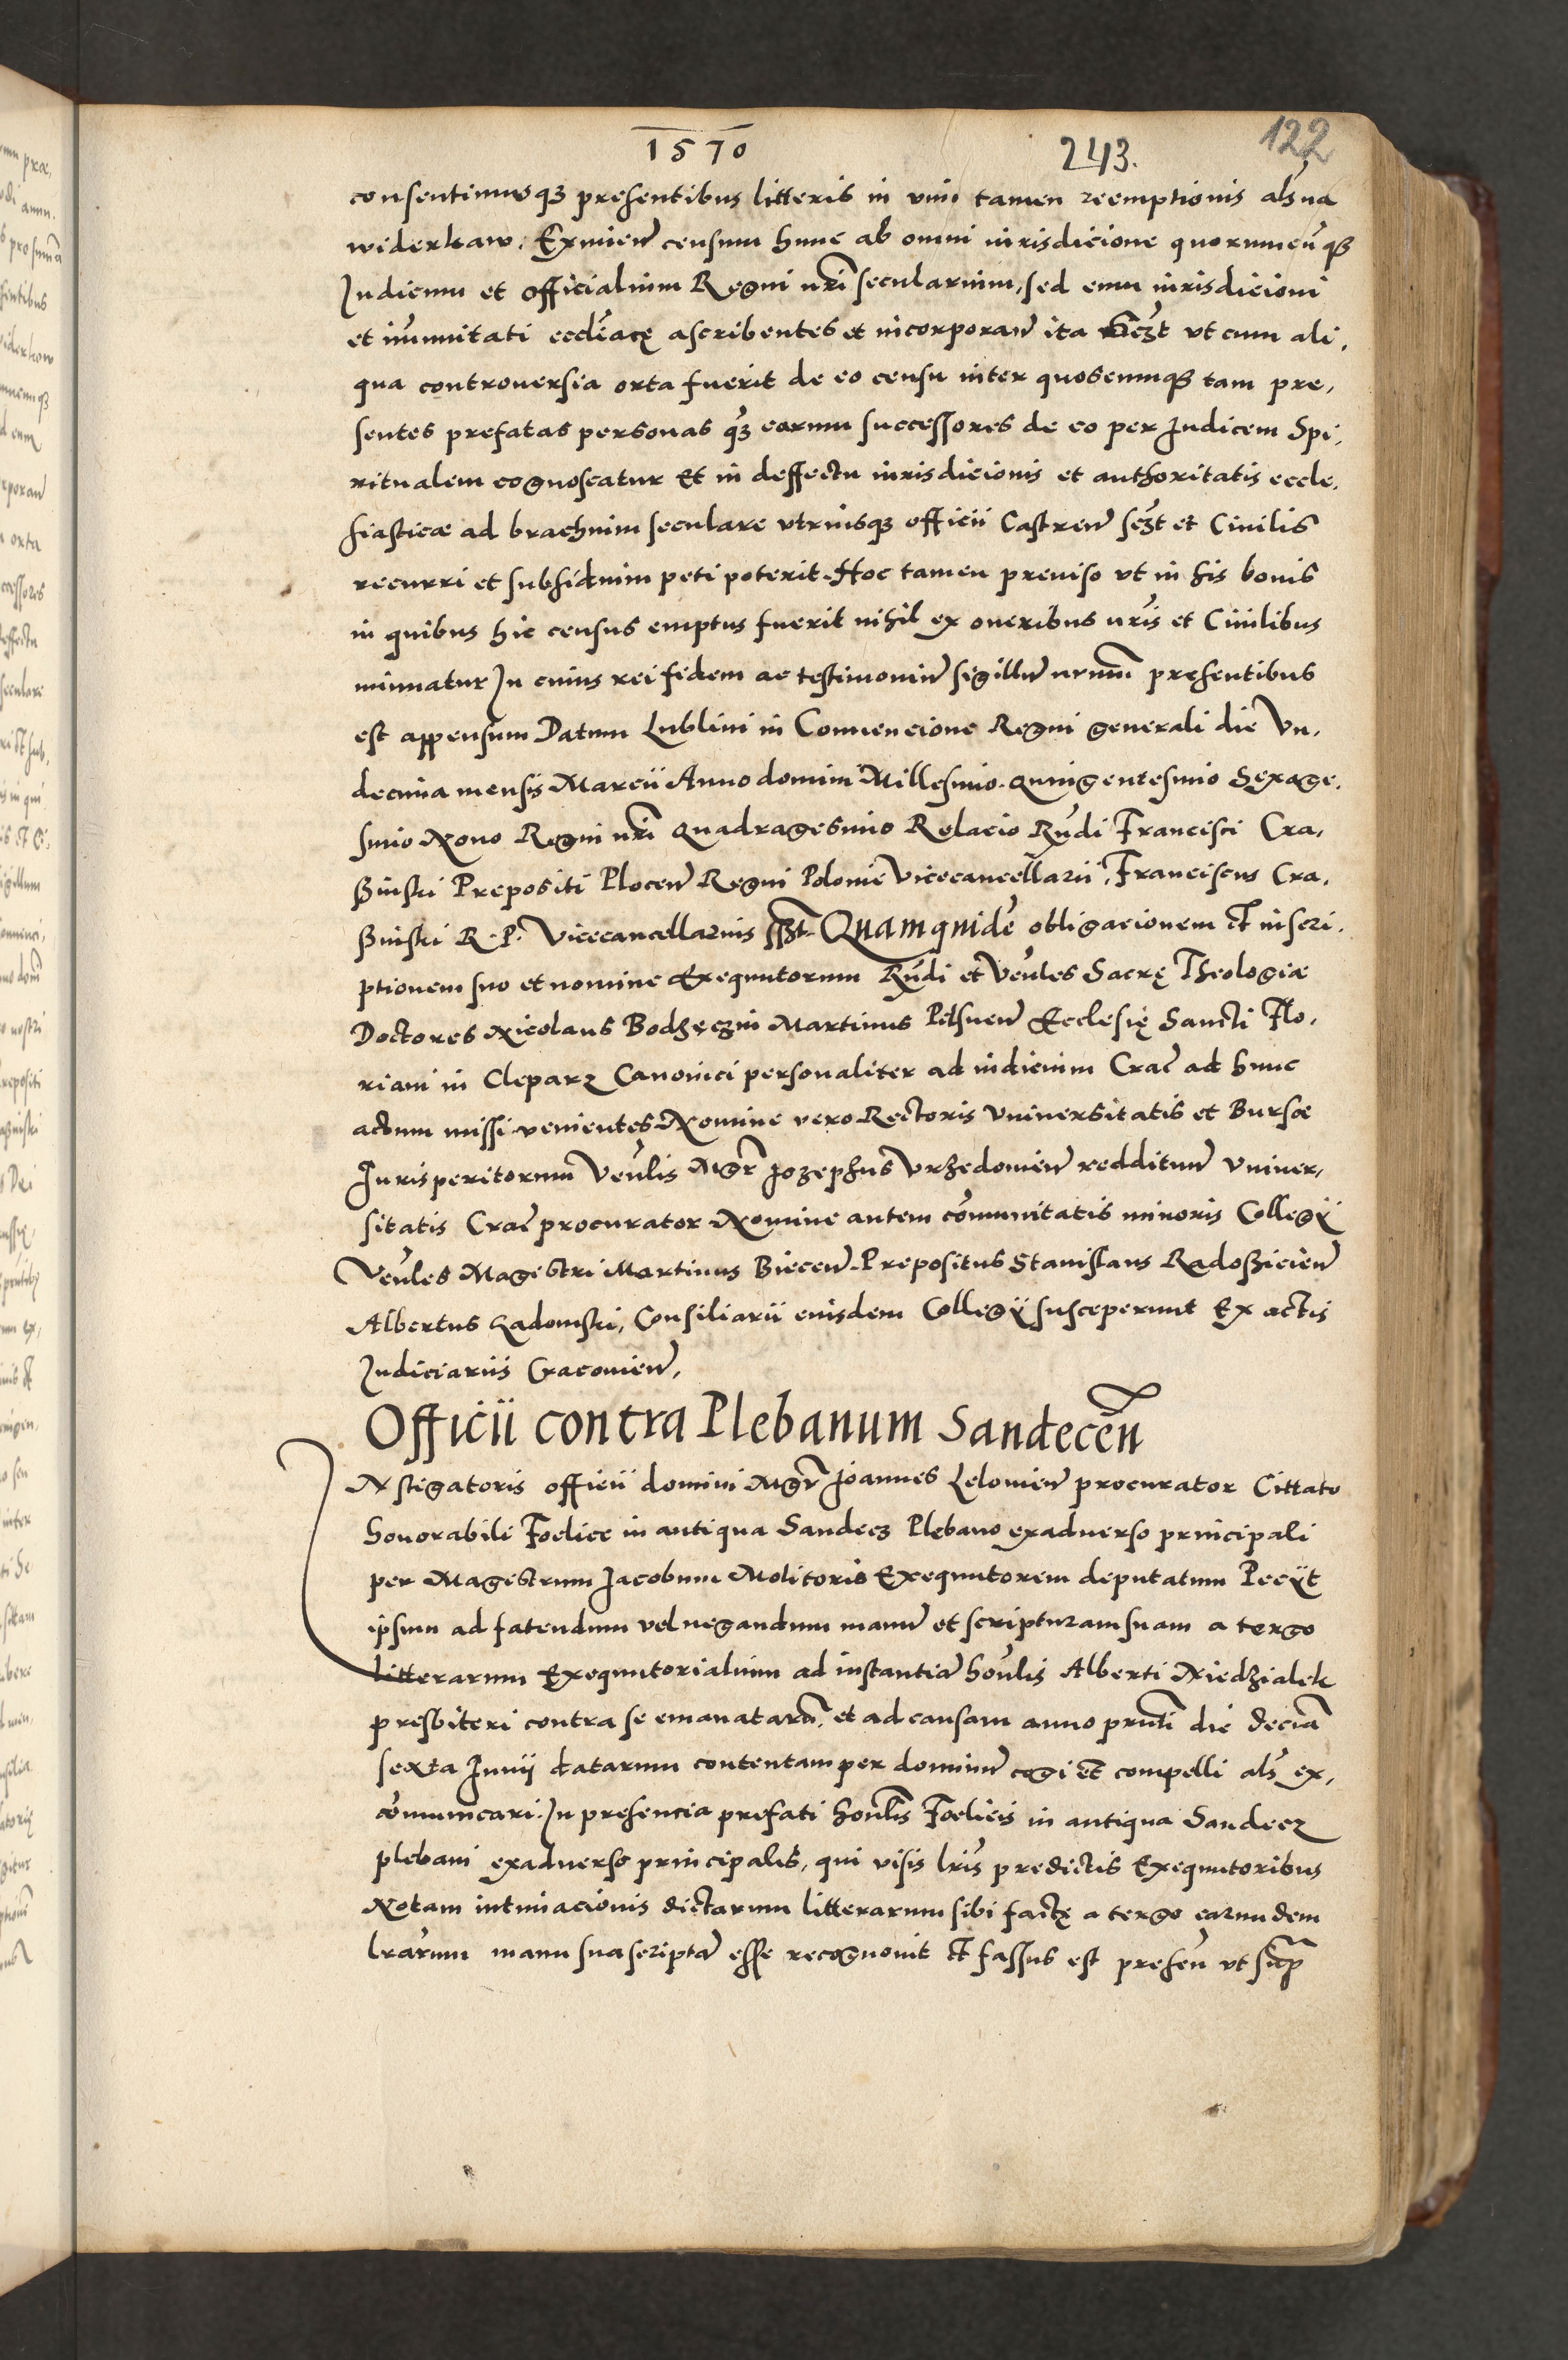 1570 243. 122
consentimusq3 presentibus litteris in vim tamen reemptionis als na
widerkaw. Eximien̄ censum hunc ab omni iurisdicione quorumcūq3
Iudicum et officialium Regni nr̄i secularium, sed eum iurisdicioni
et im̄unitati eccliacę ascribentes et incorporan̄ ita vt cum ali,
qua controuersia orta fuerit de eo censu inter quoscumq3 tam pre,
sentes prefatas personas q3 earum successores de eo per Iudicem Spi,
ritualem cognoscatur Et in deffectu iurisdicionis et authoritatis eccle,
siasticæ ad brachium seculare vtriusq3 officii Castren̄ sczt et Ciuilis
recurri et subsidium peti poterit. Hoc tamen preuiso vt in his bonis
in quibus hic census emptus fuerit nihil ex oneribus nr̄is et Ciuilibus
minuatur In cuius rei fidem ac testimoniū sigillū nrum̄ pręsentibus
est appensum Datum Lublini in Conuencione Regni generali die Vn,
decima mensis Marcii Anno domini Millesimo. quingentesimo Sexage,
simo Nono Regni nr̄i quadragesimo Relacio Rn̄di Francisci Cra,
ßinski Prepositi Plocen̄ Regni Poloniē Vicecancellarii, Franciscus Cra,
ßinski R. P. Vicecancellarius sszt. Quamquidē obligacionem et inscri,
ptionem suo et nomine Exequutorum Rn̄di et Ven̄les Sacrę Theologiæ
Doctores Nicolaus Bodzęczin Martinus Pilsnen̄ Ecclesię Sancti Flo,
riani in Cleparz Canonici personaliter ad iudicium Crac̄ ad hunc
actum missi venientes Nomine vero Rectoris Vniuersitatis et Bursæ
Iurisperitorum Ven̄lis Mgr̄ Jozephus Vrzedouien̄ redditum̄ Vniuer,
sitatis Crac̄ procurator Nomine autem cōmunitatis minoris Collegÿ
Ven̄les Magistri Martinus Biecen̄. Prepositus Stanislaus Radoßicien̄
Albertus Radomski, Consiliarii eiusdem Collegÿ susceperunt Ex actis
Iudiciariis Cracouien̄,
Officii contra Plebanum Sandecen̄
INstigatoris officii domini Mgr̄ Joannes Lelouien̄ procurator Cittato
honorabili Foelice in antiqua Sandecz Plebano exaduerso principali
per Magistrum Jacobum Molitoris Exequutorem deputatum Pecÿt
ipsum ad fatendum vel negandum manū et scripturam suam a tergo
litterarum Exequutorialium ad instantiā hon̄lis Alberti Niedzialek
presbiteri contra se emanatarū. et ad causam anno prn̄ti die decia͞
sexta Junij datarum contentam per dominū cogi et compelli als ex,
cōmunicari. In presencia prefati hon̄lis Foelicis in antiqua Sandecz
plebani exaduerso principalis, qui visis lr̄is predictis Exequutoribus
Notam intimacionis dictarum litterarum sibi factę a tergo earumdem
lrārum manu sua scriptā esse recognouit et fassus est presen̄ vt sup̄